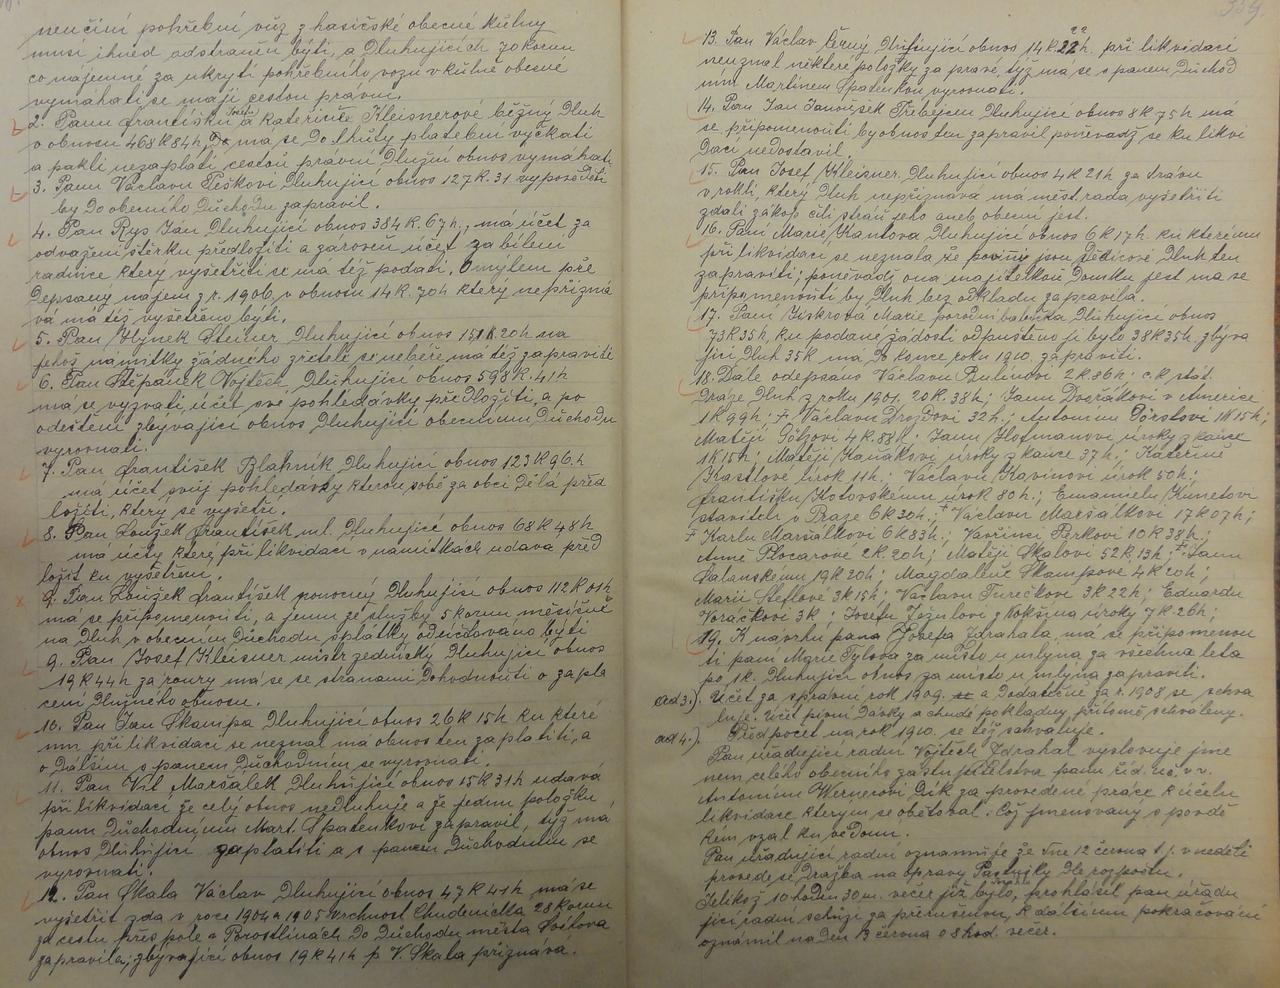 neučiní pohřební vůz z hasičské obecné kůlny
musí ihned odstraněn býti, a dluhujících 30 korun
co nájemné za ukrytí pohřebního vozu v kůlně obecné
vymáhati se mají cestou právní.
2. Panu Františku Josefu a Kateřině Kleisnerové běžný dluh
v obnosu 468K 84h, má se do lhůty platební vyčkati
a pakli nezaplatí cestou právní dlužní obnos vymáhati
3. Panu Václavu Peškovi dluhující obnos 127K. 31 vypověděti
by do obecního důchodu zapravil.
4. Pan Rys Jan dluhující obnos 384K. 67h, má účet za
odvážení štěrku předložiti a zároveň účet za bílení
radnice který vyšetřiti se má též podati. Omylem pře
depsaný nájem z r. 1906 v obnosu 14K. 70h který nepřizná
vá má též vyšetřeno býti.
5. Pan Hynek Steiner dluhující obnos 151K. 20h na
jehož námitky žádného zřetele se nebéře má též zapraviti
6. Pan Štěpánek Vojtěch dluhující obnos 598K. 41h
má se vyzvati, účet své pohledávky předložiti, a po
odečtení zbývající obnos dluhující obecnímu důchodu
vyrovnati.
7. Pan František Blahník dluhující obnos 123K 96.h
má účet svůj pohledávky kterou sobě za obcí dělá před
ložiti, který se vyšetří.
8. Pan Loužek František ml. dluhující obnos 68K 48h
má účty které při likvidaci v námitkách udává před
ložit ku vyšetření.
9. Pan Loužek František ponocný dluhující obnos 112K 01h
má se připomenouti, a jemu ze služby 5 korun měsíčně
na dluh v obecním důchodu splátky odúčtováno býti
9. Pan Josef Kleisner mistr zednický dluhující obnos
19K 44h za roury má se se stranami dohodnouti o zapla
cení dlužného obnosu.
10. Pan Jan Škampa dluhující obnos 26K 15h ku které
mu při likvidaci se neznal má obnos ten zaplatiti, a
o dalším s panem důchodním se vyrovnati.
11. Pan Vil Maršálek dluhující obnos 15K 31h udává
při likvidaci že celý obnos nedluhuje a že jednu položku
panu důchodnímu Mart. Špatenkovi zapravil, týž má
obnos dluhující zaplatiti a s panem důchodním se
vyrovnati.
12. Pan Skala Václav dluhující obnos 47K 41h má se
vyšetřit zda v roce 1904 a 1905 vrchnost Chudenická 28 korun
za cestu přes pole v Brostlinách do důchodu města Švihova
zapravila; zbývající obnos 19K 41h p V. Skala přiznává.
13. Pan Václav Černý dluhující obnos 14K 22h. při likvidaci
neuznal některé položky za pravé, týž má se s panem důchod
ním Martinem Špatenkou vyrovnati.
14. Pan Jan Janoušek Třebýcin dluhující obnos 8K 75h má
se připomenouti by obnos ten zapravil poněvadž se ku likvi
daci nedostavil.
15. Pan Josef Kleisner dluhující obnos 4K 21h za trávu
v rokli, který dluh nepřiznává má měst. rada vyšetřiti
zdali zákop čili stráň jeho aneb obecní jest.
16. Paní Marie Kantova dluhující obnos 6K 17h. ku kterému
při likvidaci se neznala že povinni jsou dědicové dluh ten
zapraviti; poněvadž ona majitelkou domku jest má se
připomenouti by dluh bez odkladu zapravila.
17. Paní Kiskrová Marie porodní babička dluhující obnos
73K 35h, ku podané žádosti odpuštěno jí bylo 38K 35h. zbýva
jící dluh 35K má do konce roku 1910. zapraviti.
18. Dále odepsáno Václavu Bulinovi 2K. 86h; c.k. stát.
dráze dluh z roku 1901. 20K. 38h; Janu Dvořákovi v Americe
1K 99h; Václavu Drozdovi 32h; Antonínu 1K 15h;
Matěji Götzovi 4K. 88h; Janu Hofmanovi úroky z kauce
1K 15h; Matěji Kaňákovi úroky z kauce 37h; Kateřině
Krastlové úrok 11h. Václavu Kavinovi úrok 50h;
Františku Kotovskému úrok 80h.; Emanuelu Kunetovi
staviteli v Praze 6K 30h; Václavu Maršálkovi 17K 07h;
Karlu Maršálkovi 6K 83h; Vavřinci Perkovi 10K 38h;
Anně Plocarové 2K. 20h; Matěji Skalovi 52K, 13h; Janu
Šalanskému 19K 20h; Magdaleně Škampové 4K 20h;
Marii Šleflové 3K 15h; Václavu Turečkovi 3K 22h; Eduardu
Voráčkovi 3K; Josefu Vizulovi z Kokšína úroky 7K 26h;
19. K návrhu pana Josefa Zdrahala má se připomenou
ti paní Marie Tylova za místo u mlýna za všechna léta
po 1K. dluhující obnos za místo u mlýna zapraviti.
ad 3.) Účet za správní rok 1909. a dodatečně za r. 1908 se schva
luje. Účet pivní dávky a chudé pokladny přítomně schváleny.
ad 4.) Předpočet na rok 1910. se též schvaluje.
Pan úřadující radní Vojtěch Zdrahal vyslovuje jmé
nem celého obecního zastupitelstva panu říd. uč. v.v.
Antonínu Wernerovi dík za provedené práce k účelu
likvidace kterým se obětoval. Což jmenovaný s povdě
kem vzal ku vědomí.
Pan úřadující radní oznamuje že dne 12 června t.j. v neděli
provede se dražba na opravy Pastušky dle rozpočtu.
Jelikož 10 hodin 30 m. večer již bylo, prohlásil pan úřadu
jící radní schůzi za přerušenou, k dalšímu pokračování
oznámil na den 13 června o 8 hod. večer.